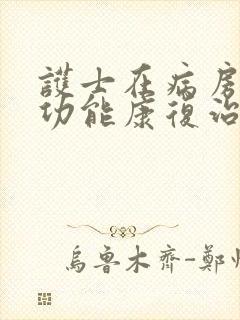 護士在病房
功能康復治
烏魯木齊-鄭